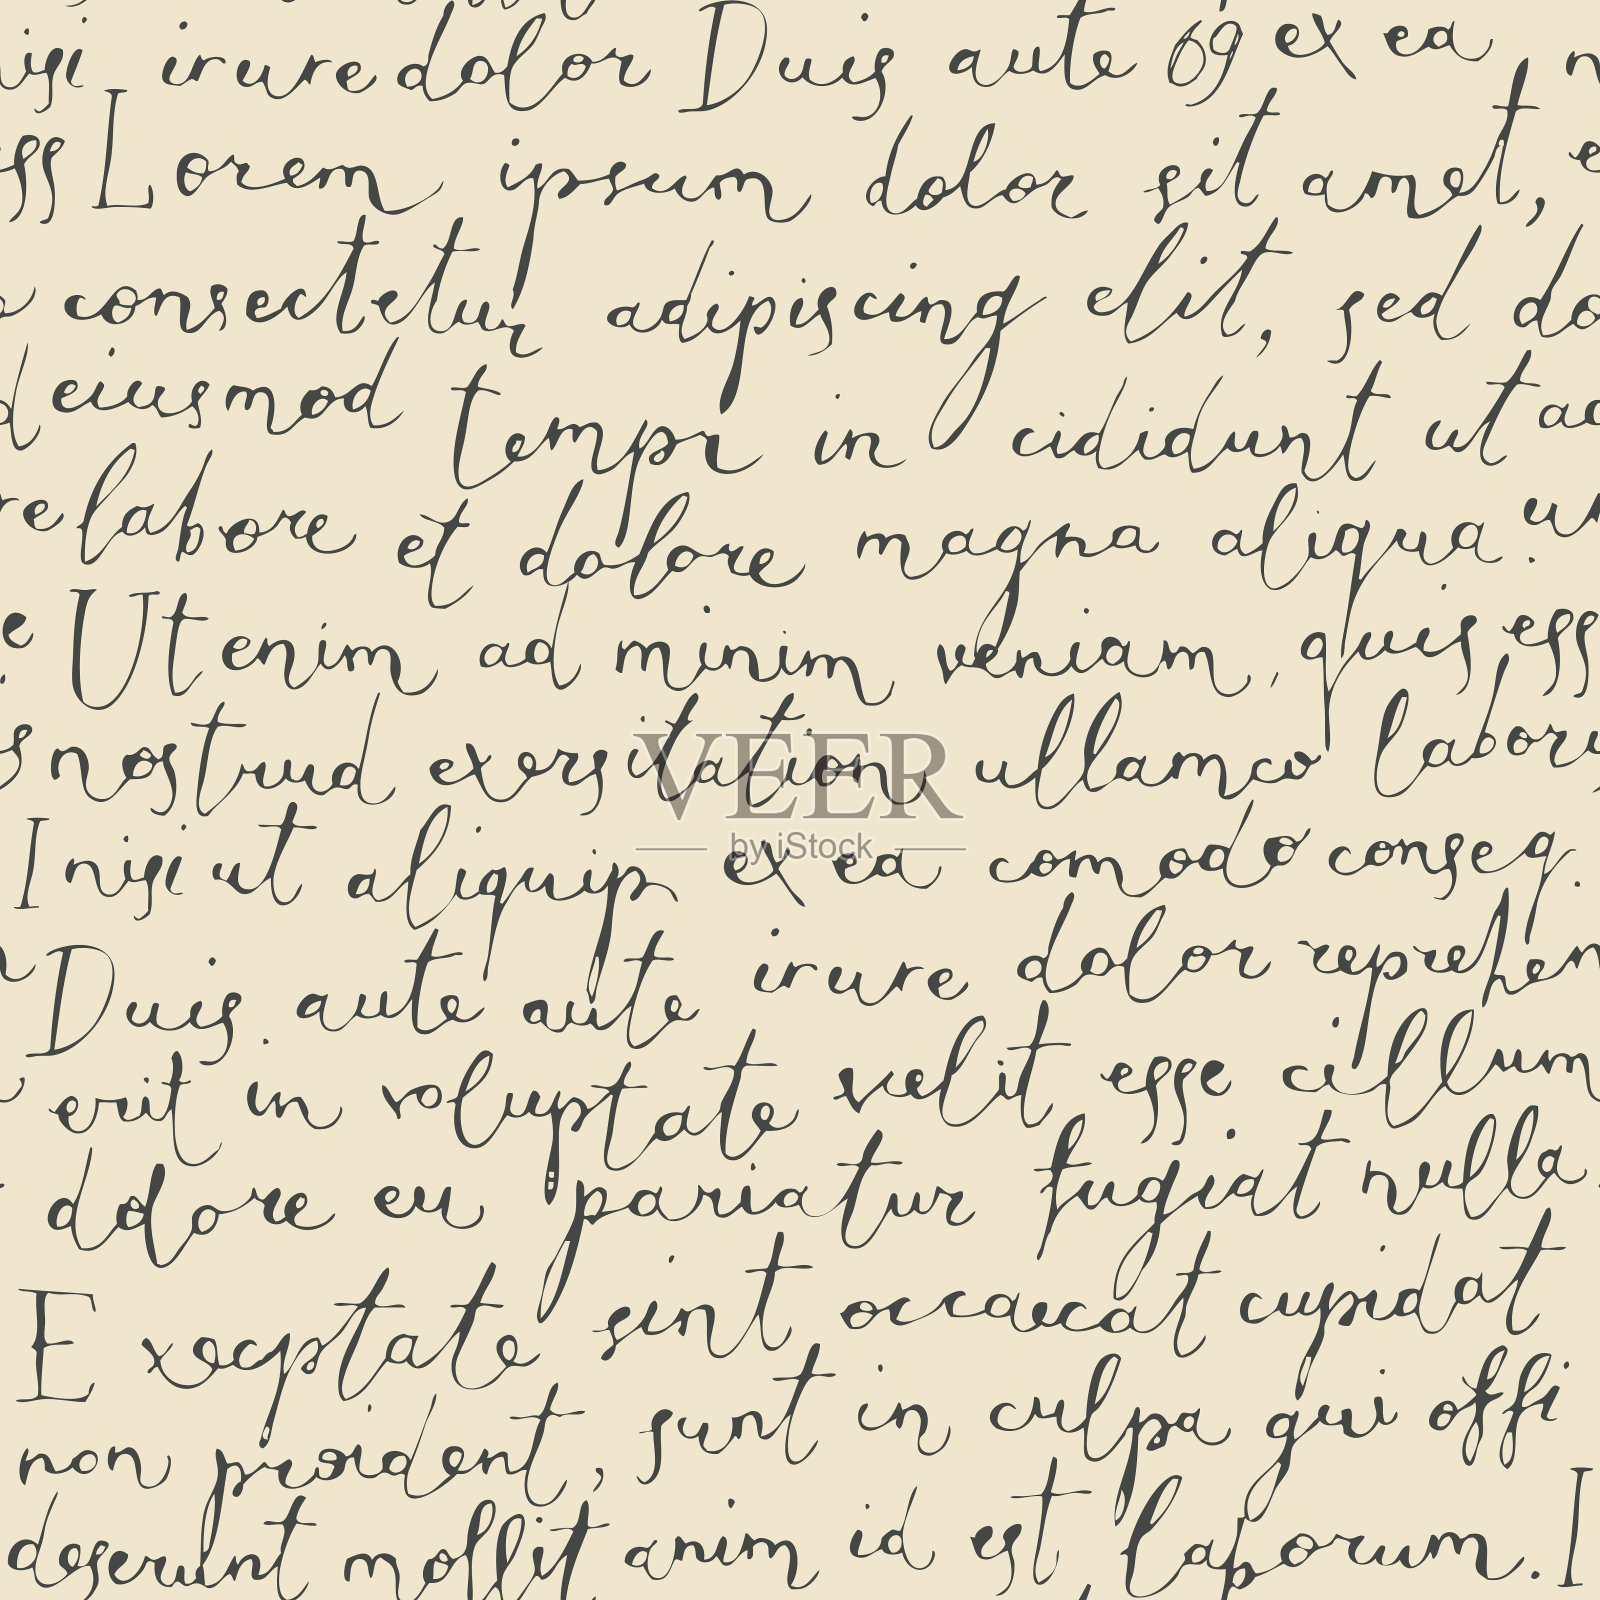 nisi irure dolor Duis aute 69 ex ea
Lorem ipsum dolor sit amet,
consectetur adipiscing elit, sed do
eiusmod tempr in cididunt ut
labore et dolore magna aliqua.
Ut enim ad minim veniam, quis ess
nostrud exersitation ullamco
VEER
by iStock
I nisi ut aliquip ex ea comodo conseq.
Duis aute aute irure dolor reprehen
erit in voluptate velit esse cillum
dolore eu pariatur fugiat nulla
Execptate sint occaecat cupidat
non proident, sunt in culpa qui offi
deserunt mollit anim id est laborum. I